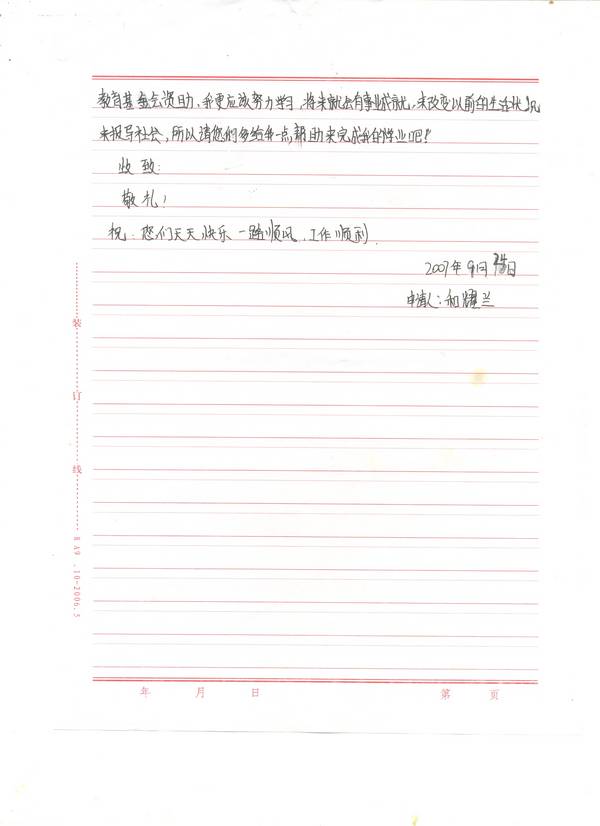 教育基金会资助，我更应该努力学习，将来就会有事业成就，来改变以前的生活状况
来报写社会，所以请您们多给我一点帮助来完成我的学业吧！
收致：
敬礼！
祝：您们天天快乐 一路顺风，工作顺利
2007年9月 日
申请人：和耀兰
装
订
线
10-2006.5
年 月 日 第 页